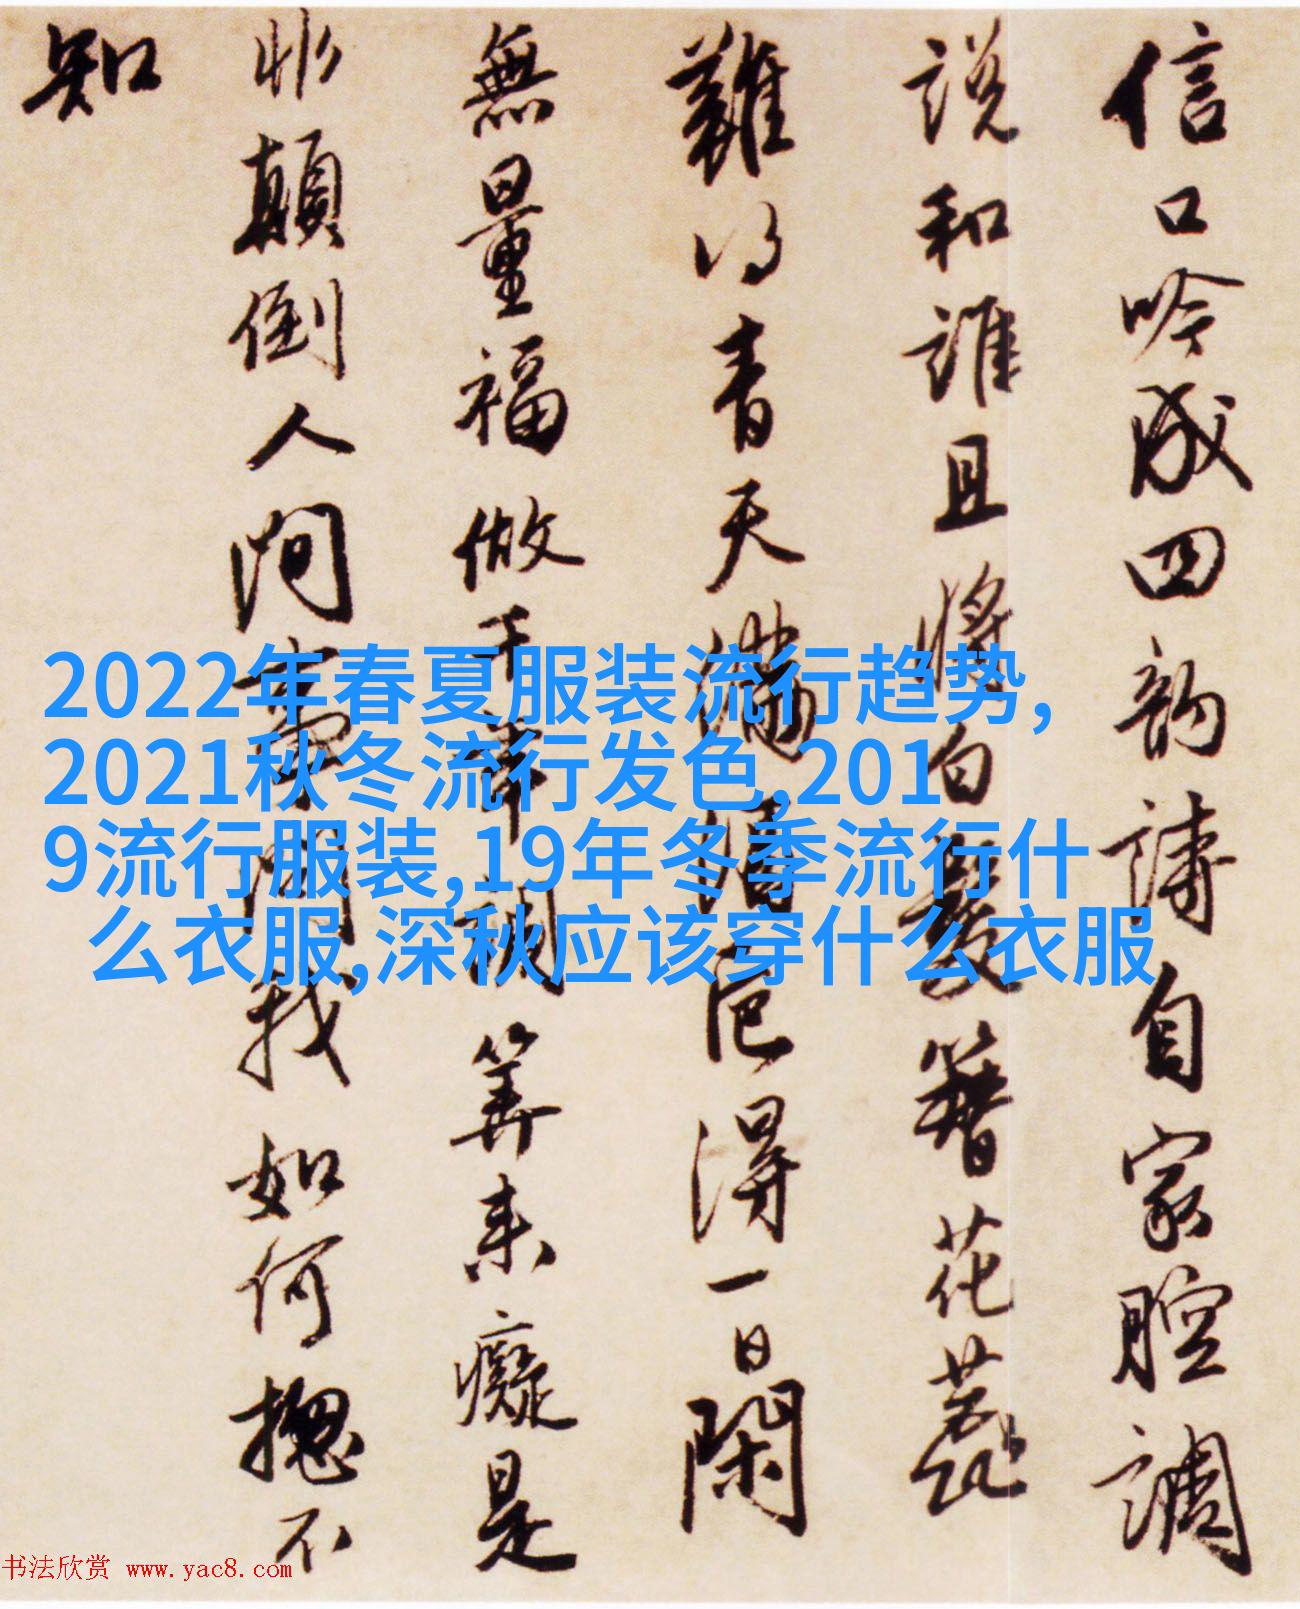 信口吟成四韵诗自家腔调
说和谁且将白发簪花蕊
难得青天满酒卮得一日闲
無量福做千年調筭来癡是
非顛倒人间事问我如何揔不
知
2022年春夏服装流行趋势,
2021秋冬流行发色,201
9流行服装,19年冬季流行什
么衣服,深秋应该穿什么衣服
书法欣赏 www.yac8.com